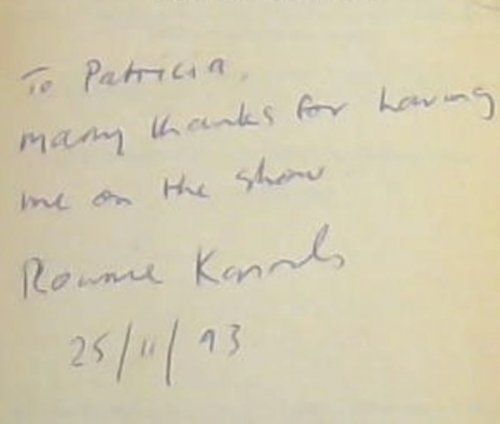 To Patricia,
Many thanks for having
me on the show
Ronnie Kasrils
25/11/93